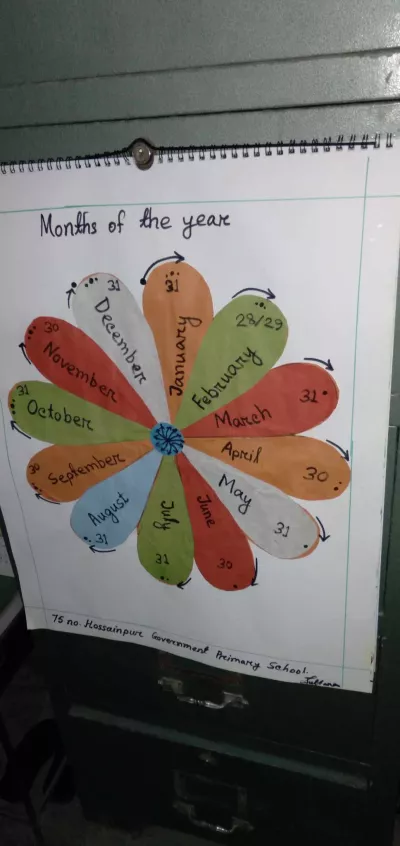 Months of the year
January
31
February
28/29
March
31
April
30
May
31
June
30
July
31
August
31
September
30
October
31
November
30
December
31
75 no. Hossainpur Government Primary School.